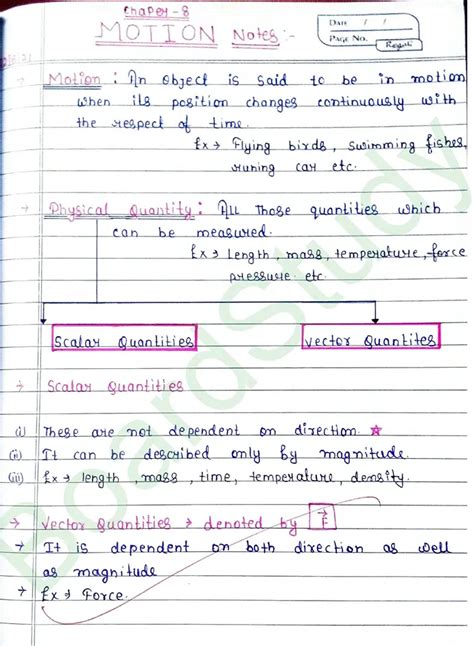 Chapter - 8
MOTION Notes :-
DATE / /
PAGE NO.
Motion : An object is said to be in motion
when its position changes continuously with
the respect of time.
Ex → Flying birds, swimming fishes,
runing car etc.
Physical Quantity : All those quantities which
can be measured.
Ex → Length, mass, temperature, force
pressure. etc.
Scalar Quantities
Vector Quantites
→ Scalar Quantities
(i) These are not dependent on direction. ☆
(ii) It can be described only by magnitude.
(iii) Ex → length, mass, time, temperature, density.
→ Vector Quantities → denoted by F
→ It is dependent on both direction as well
as magnitude
→ Ex → Force.
BoardStudy